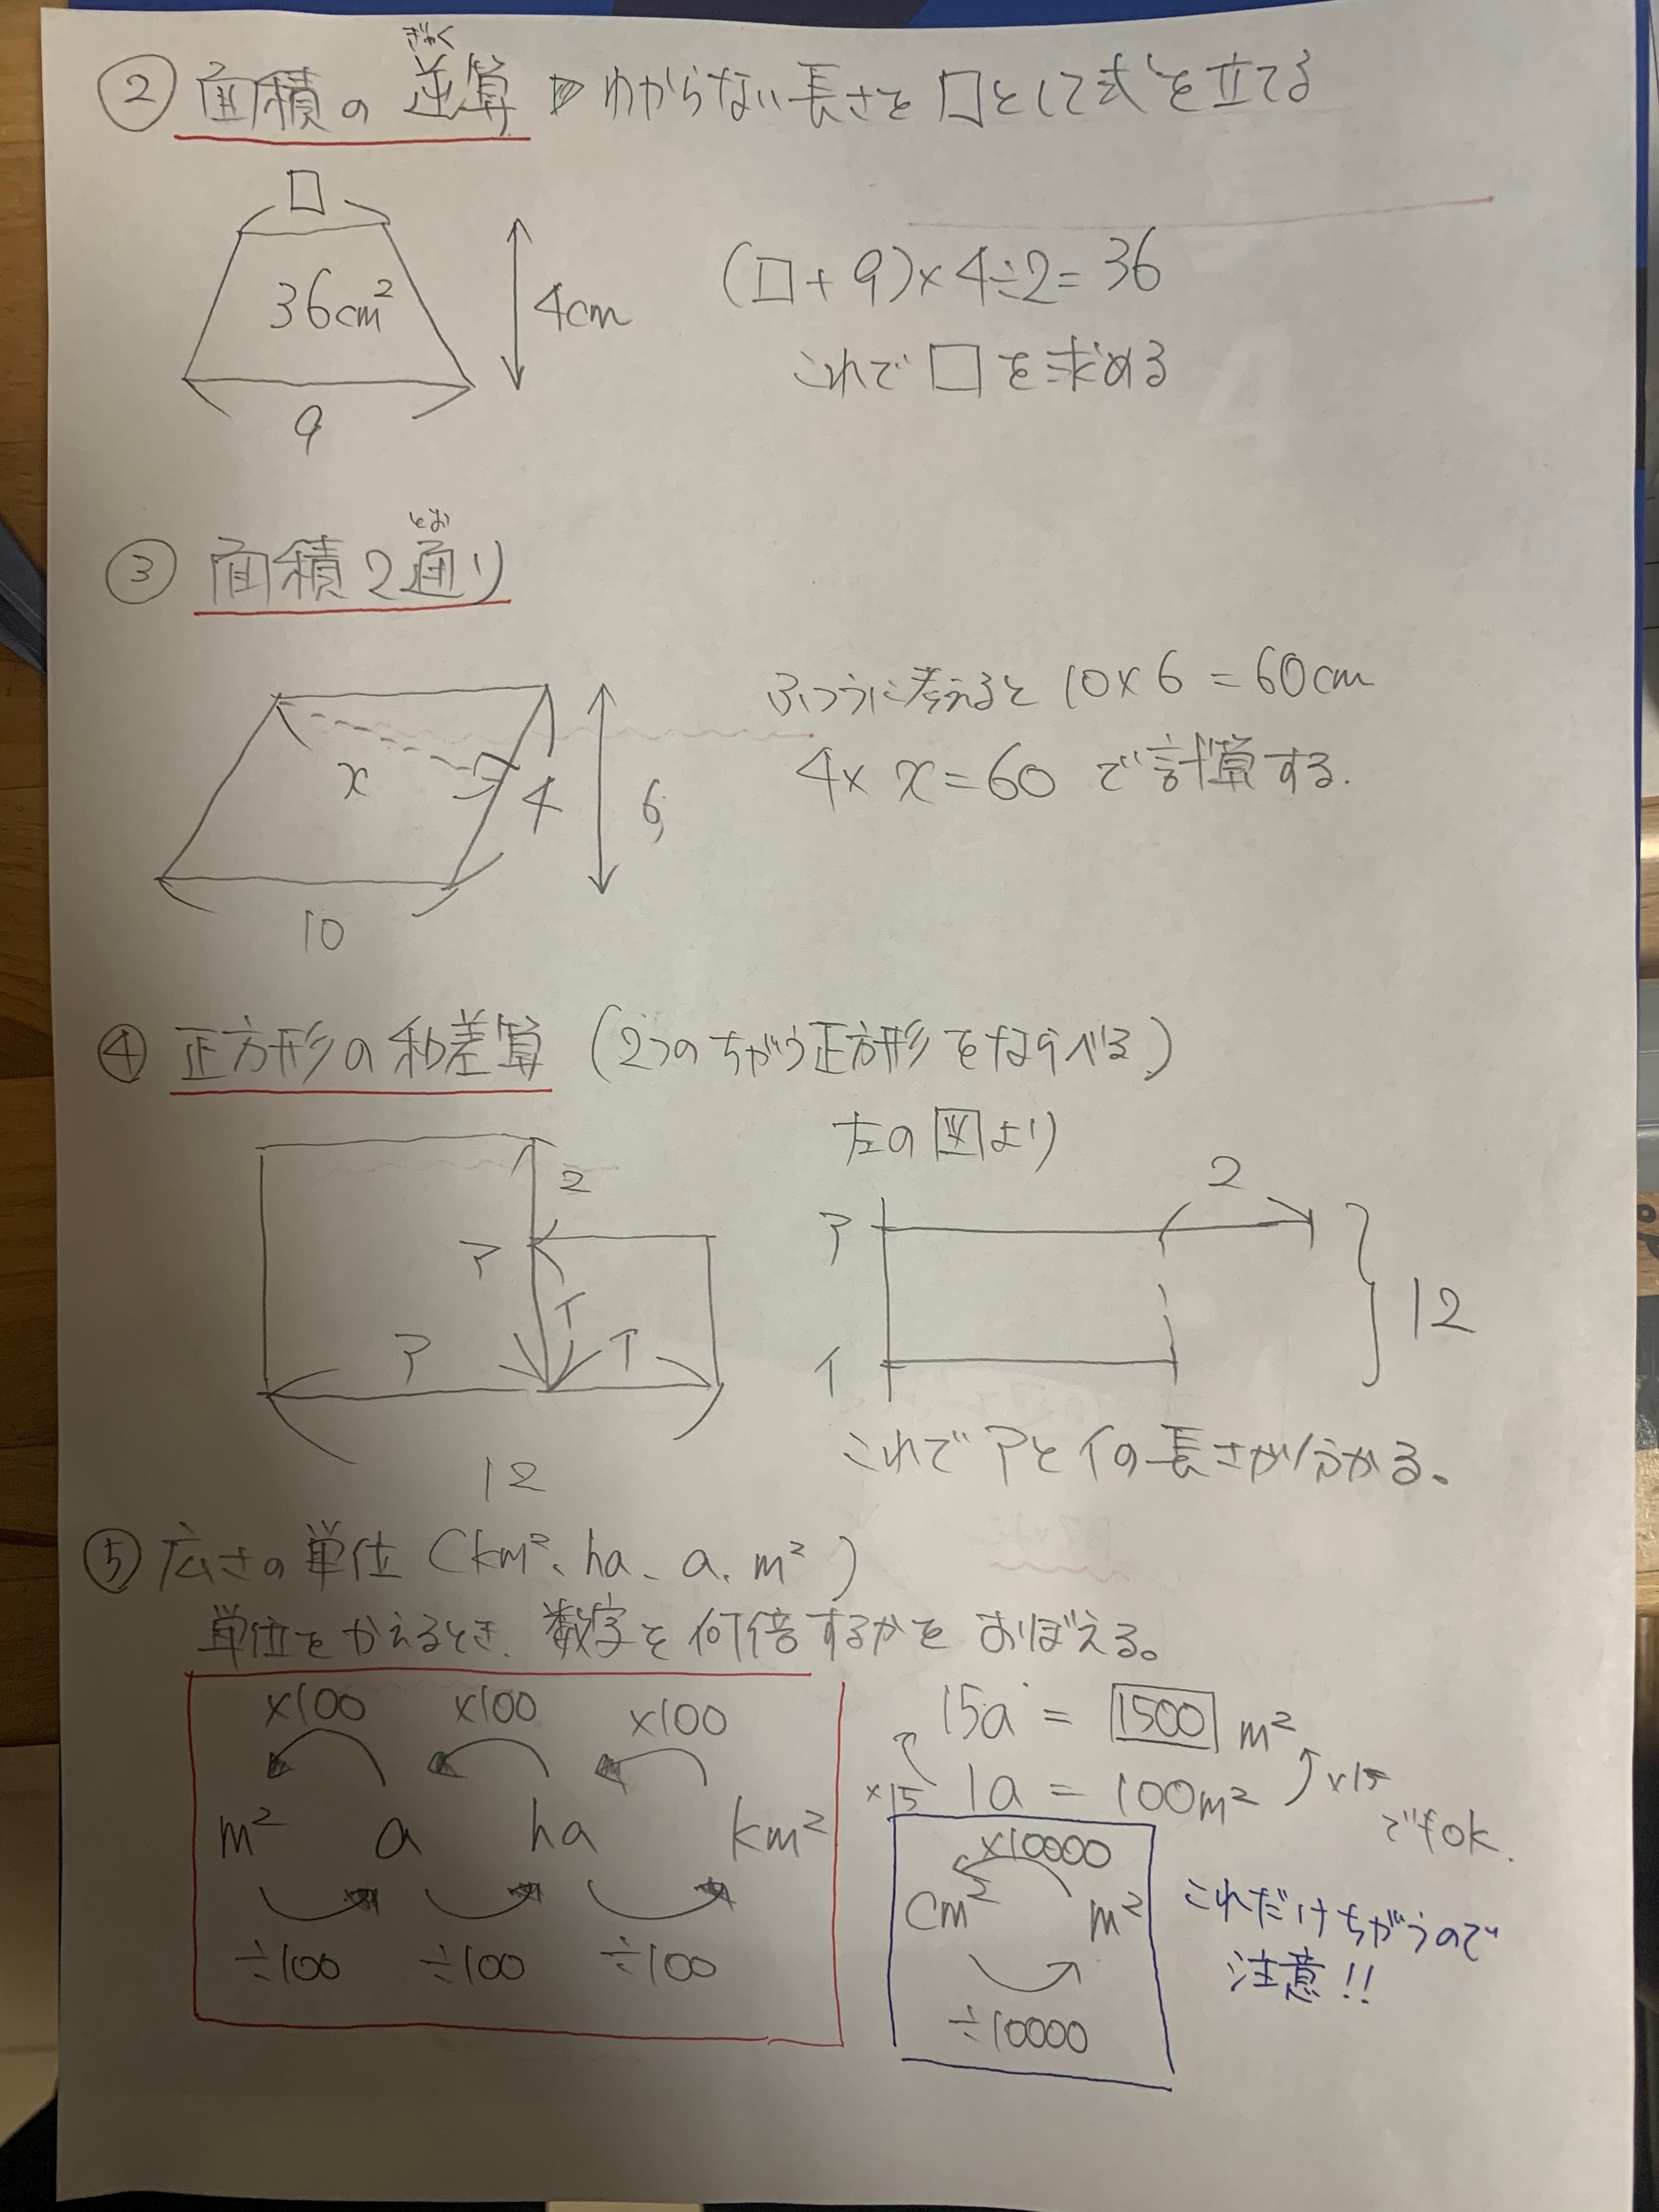 ② 面積の逆算 ▷ わからない長さを□として式を立てる
ぎゃく
□
36cm²
4cm
9
(□+9)×4÷2=36
これで□を求める
③ 面積2通り
とお
x
4
6
10
ふつうに考えると 10×6=60cm
4×x=60 で計算する.
④ 正方形の和差算 (2つのちがう正方形をならべる)
2
ア
イ
ア
イ
12
左の図より
2
ア
イ
12
これでアとイの長さが分かる。
⑤ 広さの単位 (km²、ha、a、m²)
単位をかえるとき、数字を何倍するかをおぼえる。
×100 ×100 ×100
m² a ha km²
÷100 ÷100 ÷100
15a = 1500 m²
×15 1a = 100m² ×15
でもok.
×10000
cm² m²
÷10000
これだけちがうので
注意!!